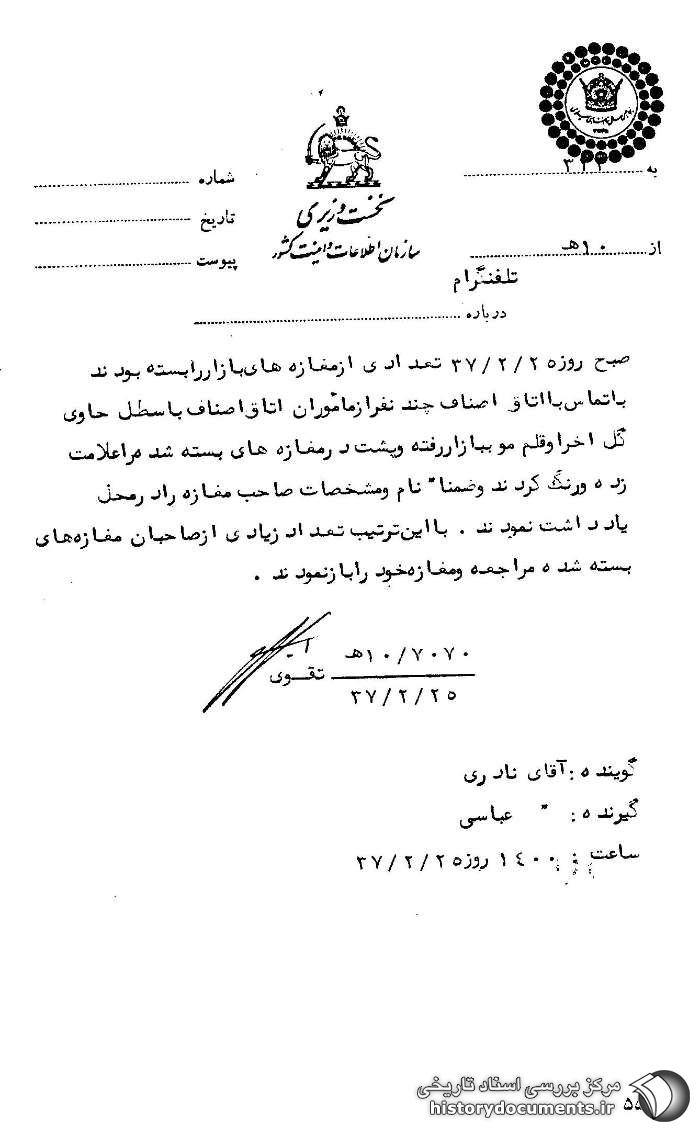 به ۳۱۲
شماره
نخست وزیری
تاریخ
سازمان اطلاعات و امنیت کشور
از ۱۰هـ
پیوست
تلفنگرام
درباره
صبح روزه ۳۷/۲/۲۵ تعدادی ازمغازه های بازاررابسته بودند
باتماس بااتاق اصناف چند نفرازمأموران اتاق اصناف باسطل حاوی
گل اخراوقلم مو ببازاررفته وپشت درمغازه های بسته شده راعلامت
زده ورنگ کردند وضمنا" نام ومشخصات صاحب مغازه رادرمحل
یادداشت نمودند . بااین ترتیب تعداد زیادی ازصاحبان مغازه های
بسته شده مراجعه ومغازه خود رابازنمودند .
۱۰/۷۰۷۰هـ
تقوی
۳۷/۲/۲۵
گوینده : آقای نادری
گیرنده : " عباسی
ساعت : ۱۴۰۰ روز ۳۷/۲/۲۵
مرکز بررسی اسناد تاریخی
historydocuments.ir